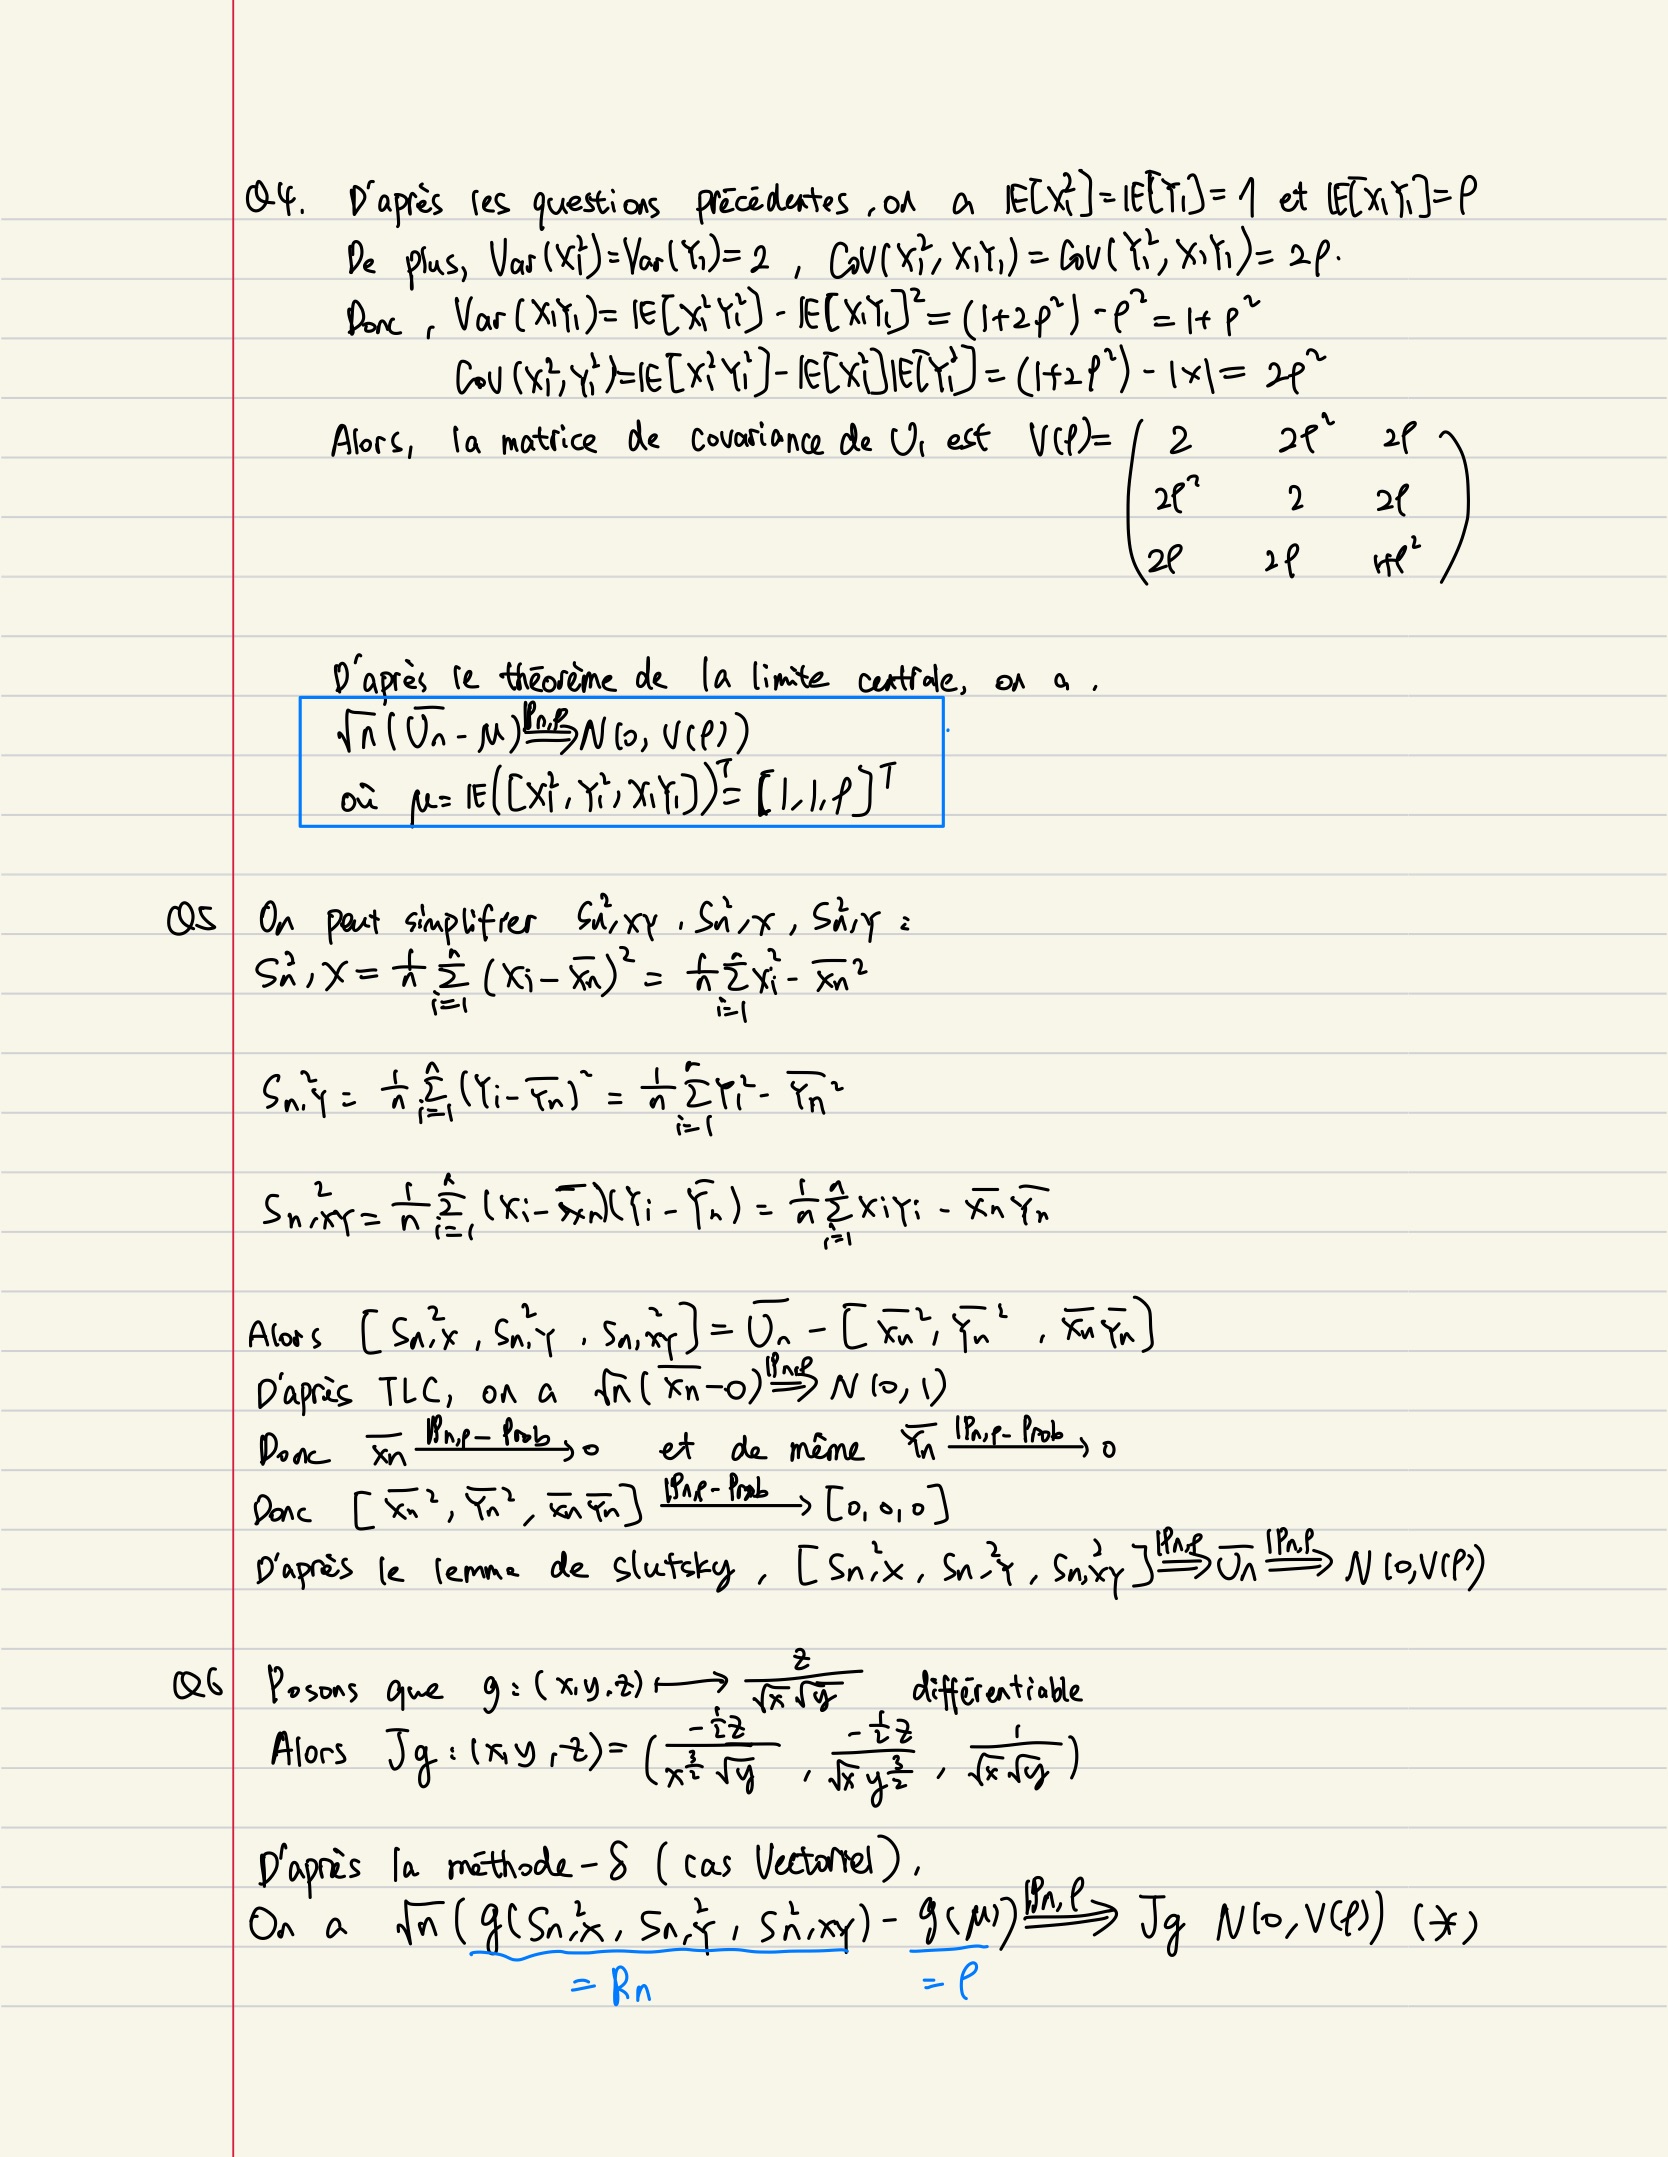 Q4. D'après les questions précédentes, on a 𝔼[X₁²]=𝔼[Y₁]=1 et 𝔼[X₁Y₁]=ρ
De plus, Var(X₁²)=Var(Y₁)=2 , Cov(X₁², X₁Y₁)=Cov(Y₁², X₁Y₁)=2ρ.
Donc, Var(X₁Y₁)=𝔼[X₁²Y₁²]-𝔼[X₁Y₁]²=(1+2ρ²)-ρ²=1+ρ²
Cov(X₁²,Y₁²)=𝔼[X₁²Y₁²]-𝔼[X₁²]𝔼[Y₁²]=(1+2ρ²)-1×1=2ρ²
Alors, la matrice de covariance de U₁ est V(ρ)= ( 2 2ρ² 2ρ
2ρ² 2 2ρ
2ρ 2ρ 1+ρ² )
D'après le théorème de la limite centrale, on a.
√n(U̅n-μ) ⟹^{ℙn,ρ} N(0, V(ρ))
où μ=𝔼([X₁², Y₁², X₁Y₁])ᵀ=[1,1,ρ]ᵀ
Q5 On peut simplifier Sn²,XY , Sn²,X , Sn²,Y :
Sn²,X = 1/n Σ_{i=1}^n (Xi-X̅n)² = 1/n Σ_{i=1}^n Xi² - X̅n²
Sn²,Y = 1/n Σ_{i=1}^n (Yi-Y̅n)² = 1/n Σ_{i=1}^n Yi² - Y̅n²
Sn²,XY = 1/n Σ_{i=1}^n (Xi-X̅n)(Yi-Y̅n) = 1/n Σ_{i=1}^n XiYi - X̅n Y̅n
Alors [Sn²,X , Sn²,Y , Sn²,XY] = U̅n - [X̅n², Y̅n² , X̅n Y̅n]
D'après TLC, on a √n(X̅n-0) ⟹^{ℙn,ρ} N(0,1)
Donc X̅n →^{ℙn,ρ-Prob} 0 et de même Y̅n →^{ℙn,ρ-Prob} 0
Donc [X̅n², Y̅n², X̅n Y̅n] →^{ℙn,ρ-Prob} [0,0,0]
D'après le lemma de slutsky, [Sn²,X , Sn²,Y , Sn²,XY] ⟹^{ℙn,ρ} U̅n ⟹^{ℙn,ρ} N(0,V(ρ))
Q6 Posons que g:(x,y,z) ⟼ z/(√x√y) différentiable
Alors Jg:(x,y,z)=( -½z/(x^{3/2}√y) , -½z/(√x y^{3/2}) , 1/(√x√y) )
D'après la méthode-δ (cas Vectoriel),
On a √n(g(Sn²,X , Sn²,Y , Sn²,XY) - g(μ)) ⟹^{ℙn,ρ} Jg N(0,V(ρ)) (*)
=Rn =ρ